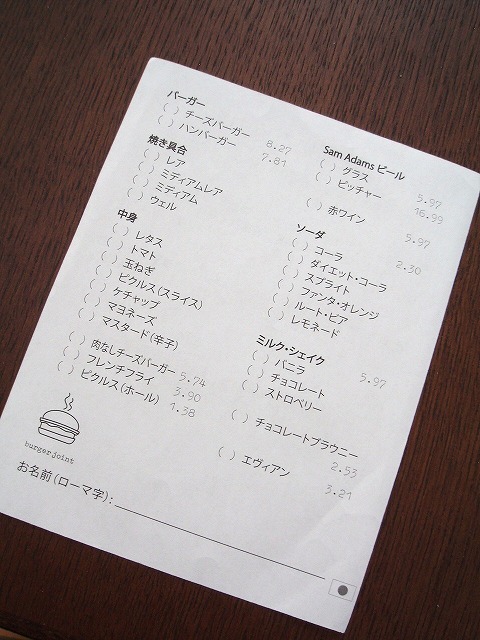 バーガー
( ) チーズバーガー 8.27
( ) ハンバーガー 7.81
焼き具合
( ) レア
( ) ミディアムレア
( ) ミディアム
( ) ウェル
中身
( ) レタス
( ) トマト
( ) 玉ねぎ
( ) ピクルス(スライス)
( ) ケチャップ
( ) マヨネーズ
( ) マスタード(辛子)
( ) 肉なしチーズバーガー 5.74
( ) フレンチフライ 3.90
( ) ピクルス(ホール) 1.38
burger joint
Sam Adams ビール
( ) グラス 5.97
( ) ピッチャー 16.99
( ) 赤ワイン 5.97
ソーダ 2.30
( ) コーラ
( ) ダイエット・コーラ
( ) スプライト
( ) ファンタ・オレンジ
( ) ルート・ビア
( ) レモネード
ミルク・シェイク 5.97
( ) バニラ
( ) チョコレート
( ) ストロベリー
( ) チョコレートブラウニー 2.53
( ) エヴィアン 3.21
お名前(ローマ字):